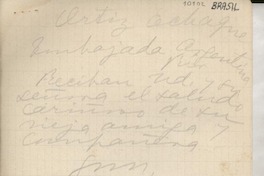 10202 BRASIL
Ortiz Echagüe
Embajada Argentina
Rio
Reciban Ud. y su
señora el saludo
cariñoso de su
vieja amiga y
compañera